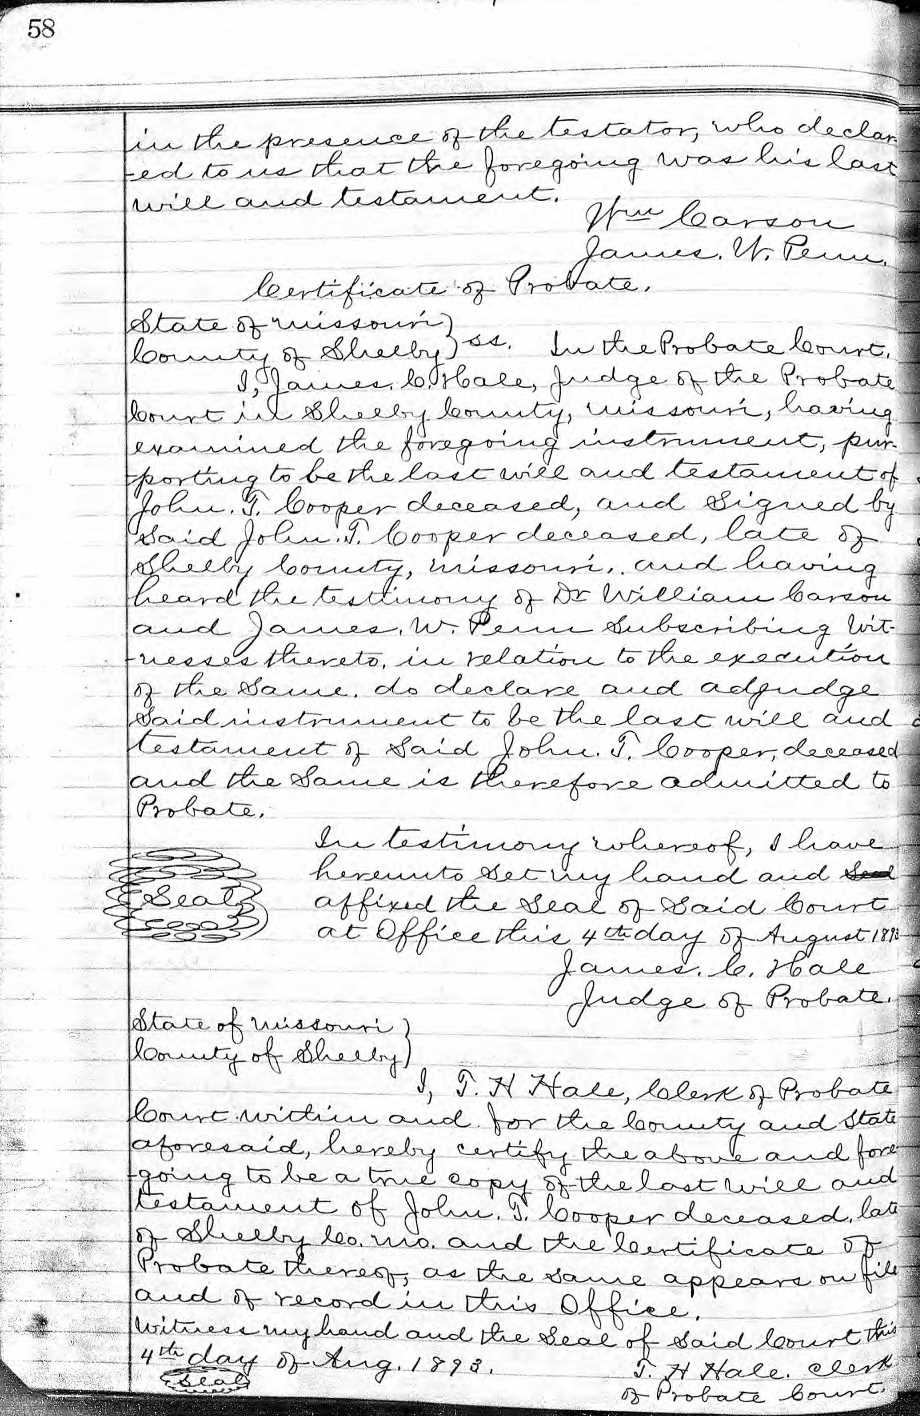 58
in the presence of the testator, who declar-
-ed to us that the foregoing was his last
will and testament.
Wm Carson
James. W. Penn.
Certificate of Probate.
State of Missouri )
County of Shelby ) ss. In the Probate Court.
I, James. C. Hale, Judge of the Probate
Court in Shelby County, Missouri, having
examined the foregoing instrument, pur-
-porting to be the last will and testament of
John. T. Cooper deceased, and Signed by
Said John. T. Cooper deceased, late of
Shelby County, Missouri,. and having
heard the testimony of Dr William Carson
and James. W. Penn Subscribing Wit-
-nesses thereto. in relation to the execution
of the Same. do declare and adjudge
Said instrument to be the last will and
testament of Said John. T. Cooper, deceased
and the Same is therefore admitted to
Probate.
In testimony whereof, I have
hereunto Set my hand and Seal
Seal
affixed the Seal of Said Court
at Office this 4th day of August 1893
James. C. Hale
Judge of Probate.
State of Missouri )
County of Shelby )
I, T. H Hale, Clerk of Probate
Court within and for the County and State
aforesaid, hereby certify the above and fore
-going to be a true copy of the last will and
testament of John. T. Cooper deceased, late
of Shelby Co. Mo. and the Certificate of
Probate thereof, as the same appears on file
and of record in this Office.
Witness my hand and the Seal of Said Court this
4th day of Aug. 1893.
T. H Hale. Clerk
Seal
of Probate Court.